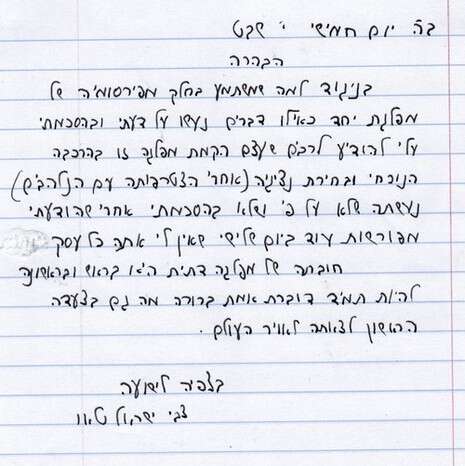 ב"ה יום חמישי י' שבט
הבהרה
בניגוד למה שמשתמע בחלק מפירסומיה של
מפלגת יחד כאילו דברים נעשו על דעתי ובהסכמתי
עלי להודיע לרבים שעצם הקמת מפלגה זו בהרכבה
הנוכחי ובחירת נציגיה (אחרי הצטרפותה עם הנלהבים)
נעשתה שלא על פי ושלא בהסכמתי אחרי שהודעתי
מפורשות עוד ביום שלישי שאין לי אתה כל עסק
חובתה של מפלגה דתית היא בראש ובראשונה
להיות תמיד דוברת אמת ברורה מה גם בצעדה
הראשון לצאתה לאויר העולם.
בצפיה לישועה
צבי ישראל טאו